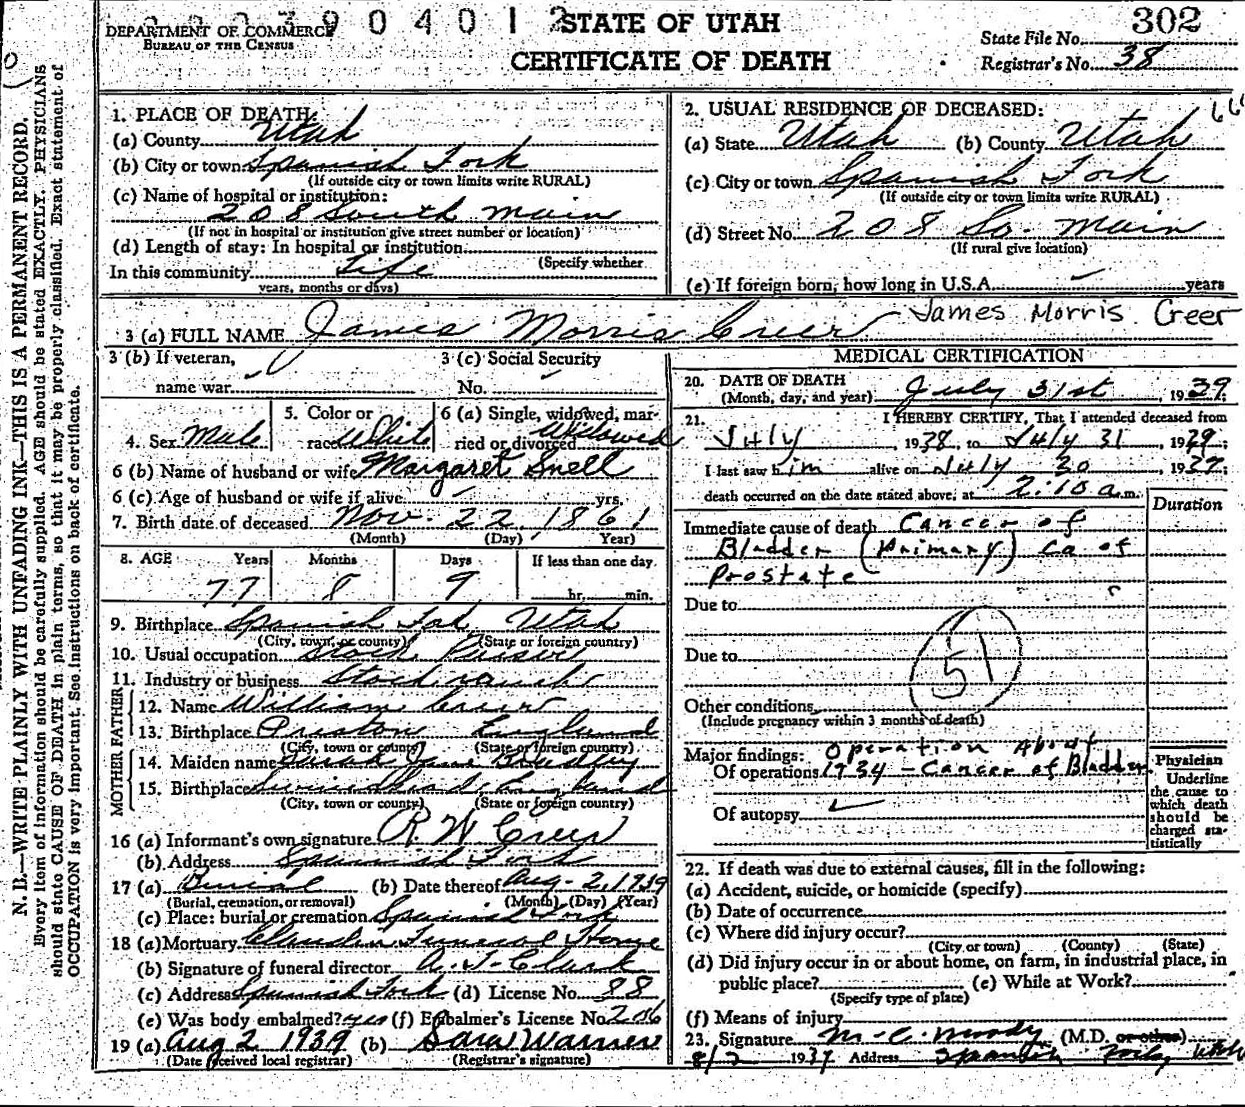 390401 2 STATE OF UTAH 302
DEPARTMENT OF COMMERCE
BUREAU OF THE CENSUS
CERTIFICATE OF DEATH
State File No.
Registrar's No. 38
N. B.—WRITE PLAINLY WITH UNFADING INK—THIS IS A PERMANENT RECORD.
Every item of information should be carefully supplied. AGE should be stated EXACTLY. PHYSICIANS
should state CAUSE OF DEATH in plain terms, so that it may be properly classified. Exact statement of
OCCUPATION is very important. See instructions on back of certificate.
1. PLACE OF DEATH:
(a) County Utah
(b) City or town Spanish Fork
(If outside city or town limits write RURAL)
(c) Name of hospital or institution:
208 South Main
(If not in hospital or institution give street number or location)
(d) Length of stay: In hospital or institution
(Specify whether
In this community Life
years, months or days)
2. USUAL RESIDENCE OF DECEASED:
(a) State Utah (b) County Utah
(c) City or town Spanish Fork
(If outside city or town limits write RURAL)
(d) Street No. 208 So. Main
(If rural give location)
(e) If foreign born, how long in U.S.A. years
3 (a) FULL NAME James Morris Creer James Morris Creer
3 (b) If veteran,
name war.
3 (c) Social Security
No.
4. Sex Male
5. Color or
race White
6 (a) Single, widowed, mar-
ried or divorced Widowed
6 (b) Name of husband or wife Margaret Snell
6 (c) Age of husband or wife if alive yrs.
7. Birth date of deceased Nov. 22, 1861
(Month) (Day) Year)
8. AGE Years Months Days If less than one day
77 8 9 hr. min.
9. Birthplace Spanish Fork Utah
(City, town, or county) (State or foreign country)
10. Usual occupation Stock Raiser
11. Industry or business Stock ranch
FATHER
12. Name William Creer
13. Birthplace Preston England
(City, town or county) (State or foreign country)
MOTHER
14. Maiden name Sarah Jane Bradley
15. Birthplace England
(City, town or county) (State or foreign country)
16 (a) Informant's own signature R W Creer
(b) Address Spanish Fork
17 (a) Burial (b) Date thereof Aug. 2, 1939
(Burial, cremation, or removal) (Month) (Day) (Year)
(c) Place: burial or cremation Spanish Fork
18 (a) Mortuary Funeral Home
(b) Signature of funeral director
(c) Address Spanish Fork (d) License No. 88
(e) Was body embalmed? yes (f) Embalmer's License No. 206
19 (a) Aug 2 1939 (b) Sara Warner
(Date received local registrar) (Registrar's signature)
MEDICAL CERTIFICATION
20. DATE OF DEATH
(Month, day, and year) July 31st, 1939
21. I HEREBY CERTIFY, That I attended deceased from
July 1938, to July 31, 1939;
I last saw him alive on July 30, 1939;
death occurred on the date stated above, at 2:10 a.m.
Duration
Immediate cause of death Cancer of
Bladder (Primary) Ca of
Prostate
Due to
Due to
51
Other conditions
(Include pregnancy within 3 months of death)
Major findings: Operation About
Of operations 1934 - Cancer of Bladder
Of autopsy
Physician
Underline
the cause to
which death
should be
charged sta-
tistically
22. If death was due to external causes, fill in the following:
(a) Accident, suicide, or homicide (specify)
(b) Date of occurrence
(c) Where did injury occur?
(City or town) (County) (State)
(d) Did injury occur in or about home, on farm, in industrial place, in
public place? (e) While at Work?
(Specify type of place)
(f) Means of injury
23. Signature M. C. Moody (M.D. or other)
8/2 1939 Address Spanish Fork, Utah